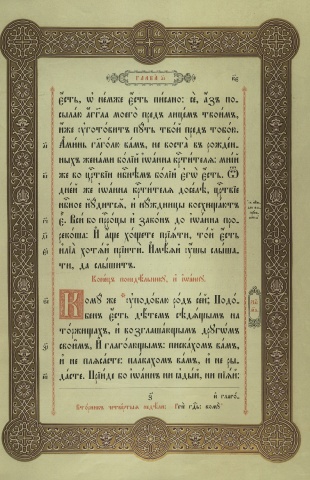 ГЛАВА аі
є҆́сть, ѡ҆ не́мже є҆́сть пи́сано: сѐ, а҆́зъ по-
сыла́ю а҆́гг҃ла моего̀ пред̾ лице́мъ твои́мъ,
и҆́же ᲂу҆гото́витъ пꙋ́ть тво́й пред̾ тобо́ю.
А҆ми́нь глаго́лю ва́мъ, не воста̀ въ рожде́н-
ныхъ жена́ми бо́лїй і҆ѡа́нна крⷭ҇ти́телѧ: мні́й
же во црⷭ҇твїи нбⷭ҇нѣмъ бо́лїй є҆гѡ̀ є҆́сть. Ѿ
дні́й же і҆ѡа́нна крⷭ҇ти́телѧ досе́лѣ, црⷭ҇твїе
нбⷭ҇ное нꙋ́дитсѧ, и҆ нꙋ́ждницы восхища́ютъ
є҆̀. Всѝ бо прⷪ҇ро́цы и҆ зако́нъ до і҆ѡа́нна про-
реко́ша: И҆ а҆́ще хо́щете прїѧ́ти, то́й є҆́сть
и҆лїа̀ хотѧ́й прїитѝ. И҆мѣ́ѧй ᲂу҆́шы слы́ша-
ти, да слы́шитъ.
Коне́цъ понедѣ́льникꙋ, и҆ і҆ѡа́ннꙋ.
Комꙋ́ же ᲂу҆подо́блю ро́дъ се́й; Подо́-
бенъ є҆́сть дѣ́темъ сѣдѧ́щымъ на
то́ржищахъ, и҆ возглаша́ющымъ дрꙋгѡ́мъ
свои̑мъ, И҆ глаго́лющымъ: писка́хомъ ва́мъ,
и҆ не плѧса́сте: пла́кахомъ ва́мъ, и҆ не ры-
да́сте. Прїи́де бо і҆ѡа́ннъ ни ꙗ҆ды́й, ни пїѧ́й:
и҆ глаго́-
Вто́рникъ четве́ртыѧ недѣ́ли: Речѐ гдⷭ҇ь: комꙋ̀